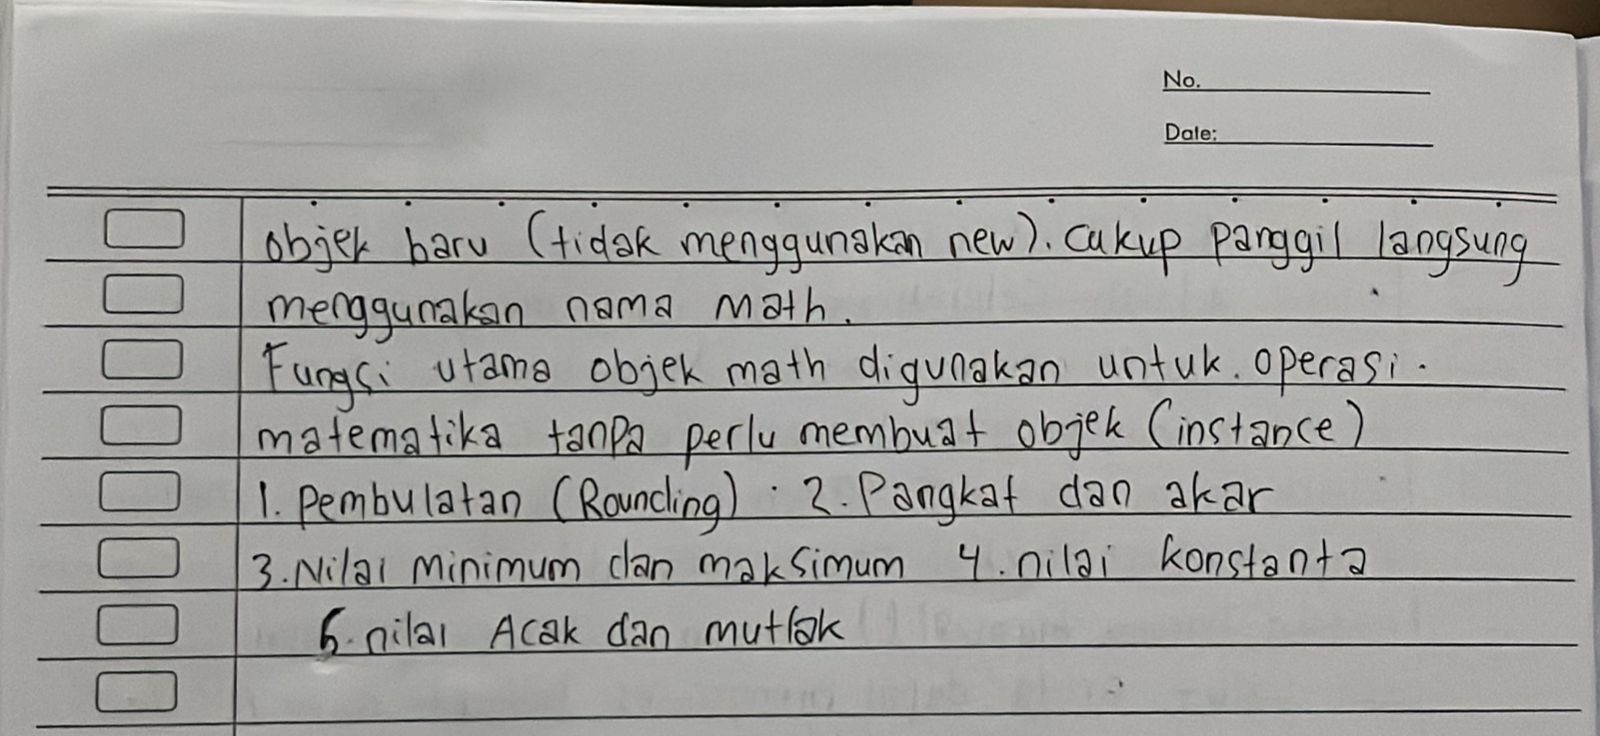 No.
Date:
objek baru (tidak menggunakan new). Cukup panggil langsung
menggunakan nama Math.
Fungsi utama objek math digunakan untuk. operasi.
matematika tanpa perlu membuat objek (instance)
1. Pembulatan (Rounding). 2. Pangkat dan akar
3. Nilai Minimum dan maksimum 4. nilai konstanta
5. nilai Acak dan mutlak